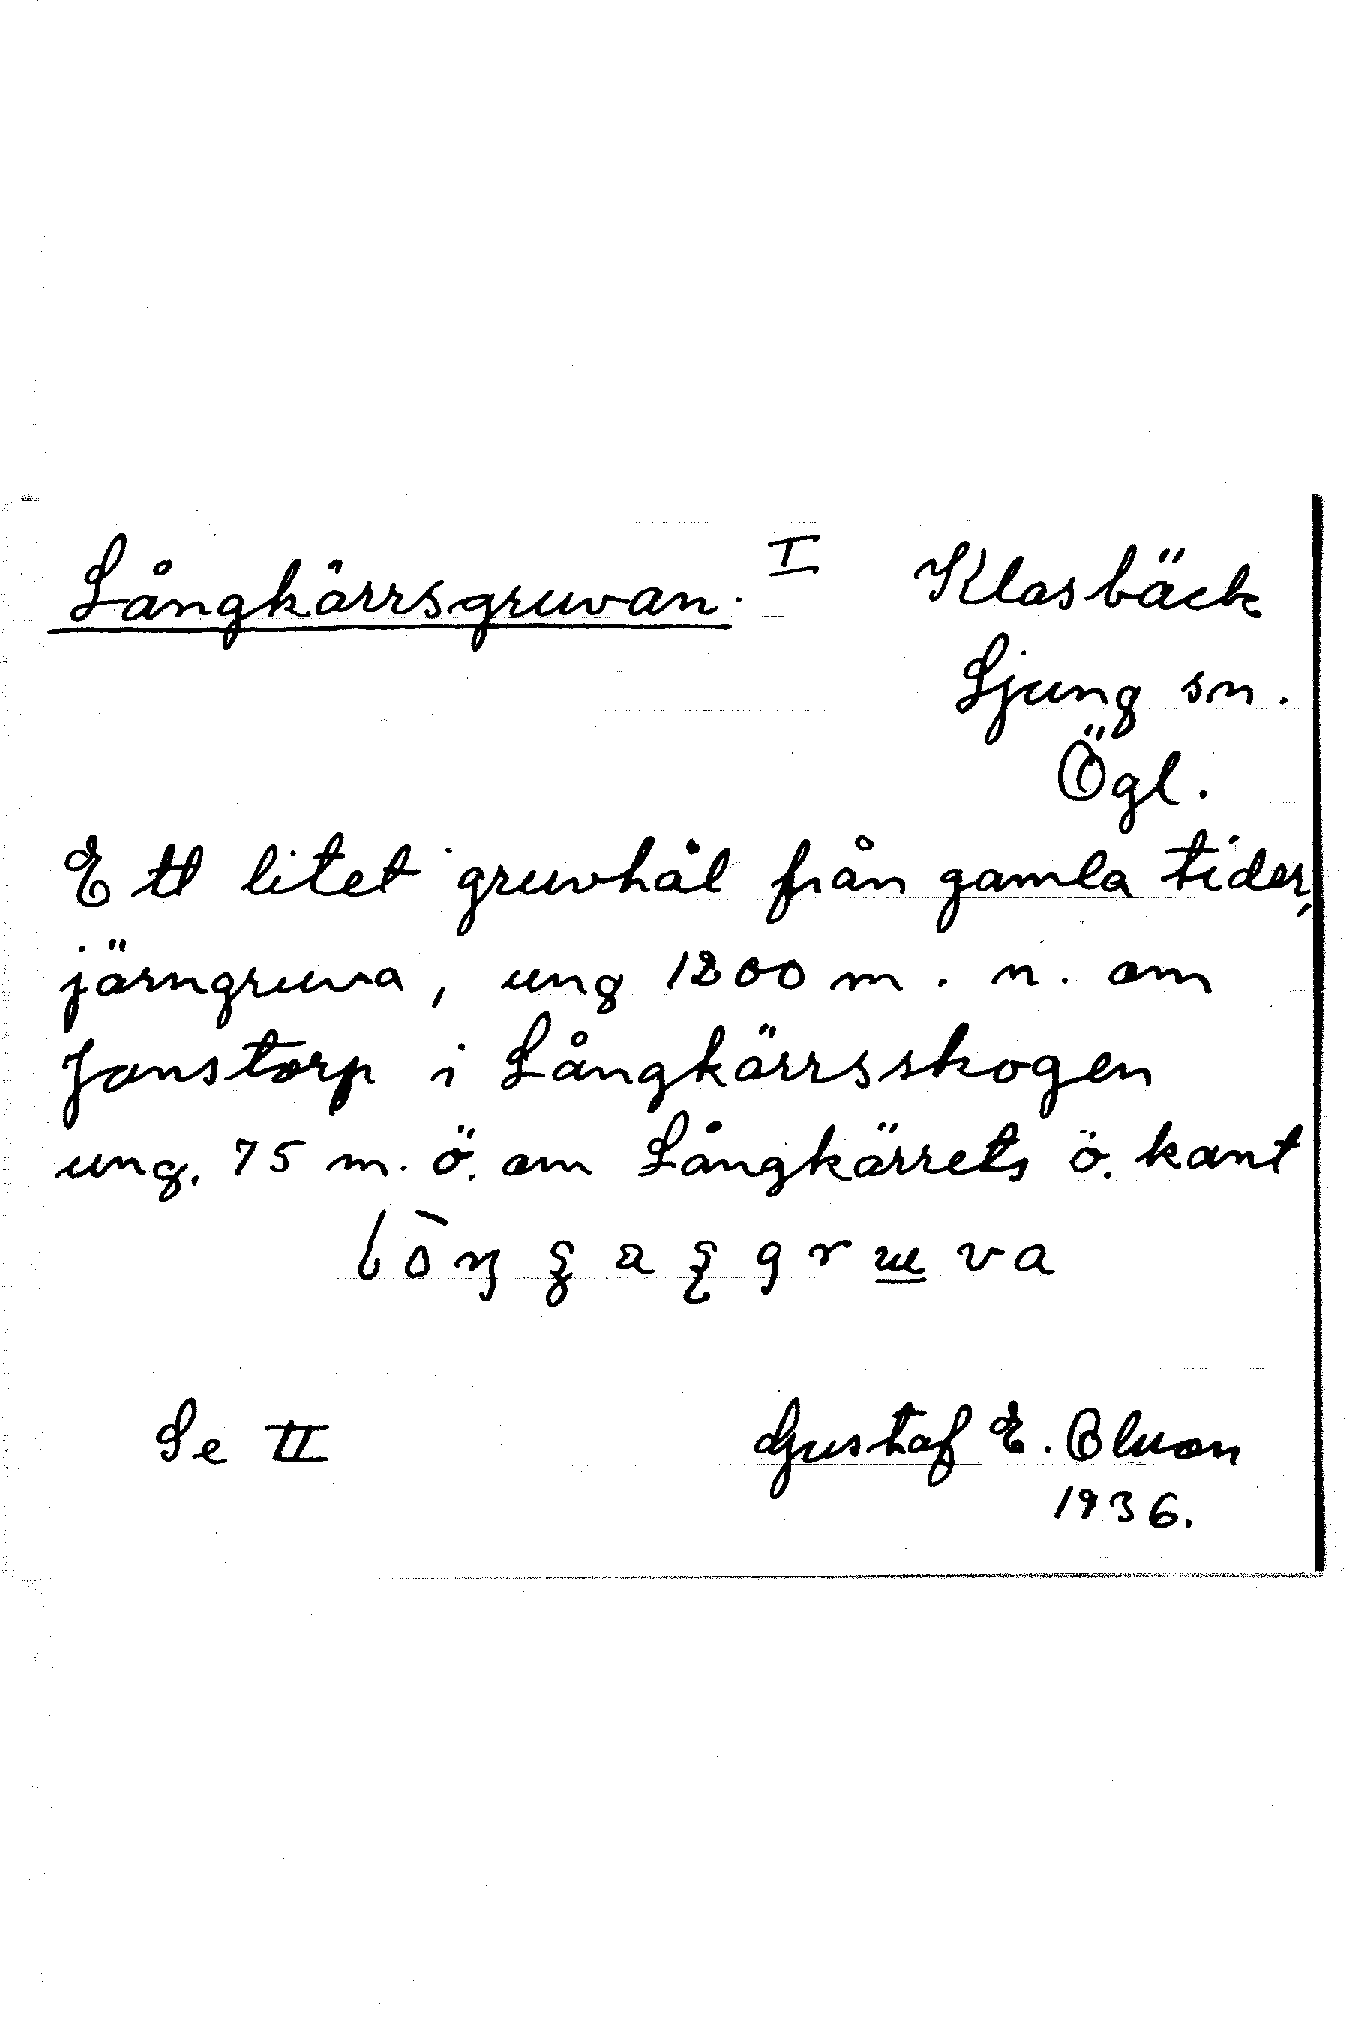 Långkärrsgruvan. I Klasbäck
Ljung sn.
Ögl.
Ett litet gruvhål från gamla tider,
järngruva, ung 1200 m. n. om
Janstorp i Långkärrsskogen
ung. 75 m. ö. om Långkärrets ö. kant
Se II Gustaf E. Olson
1936.